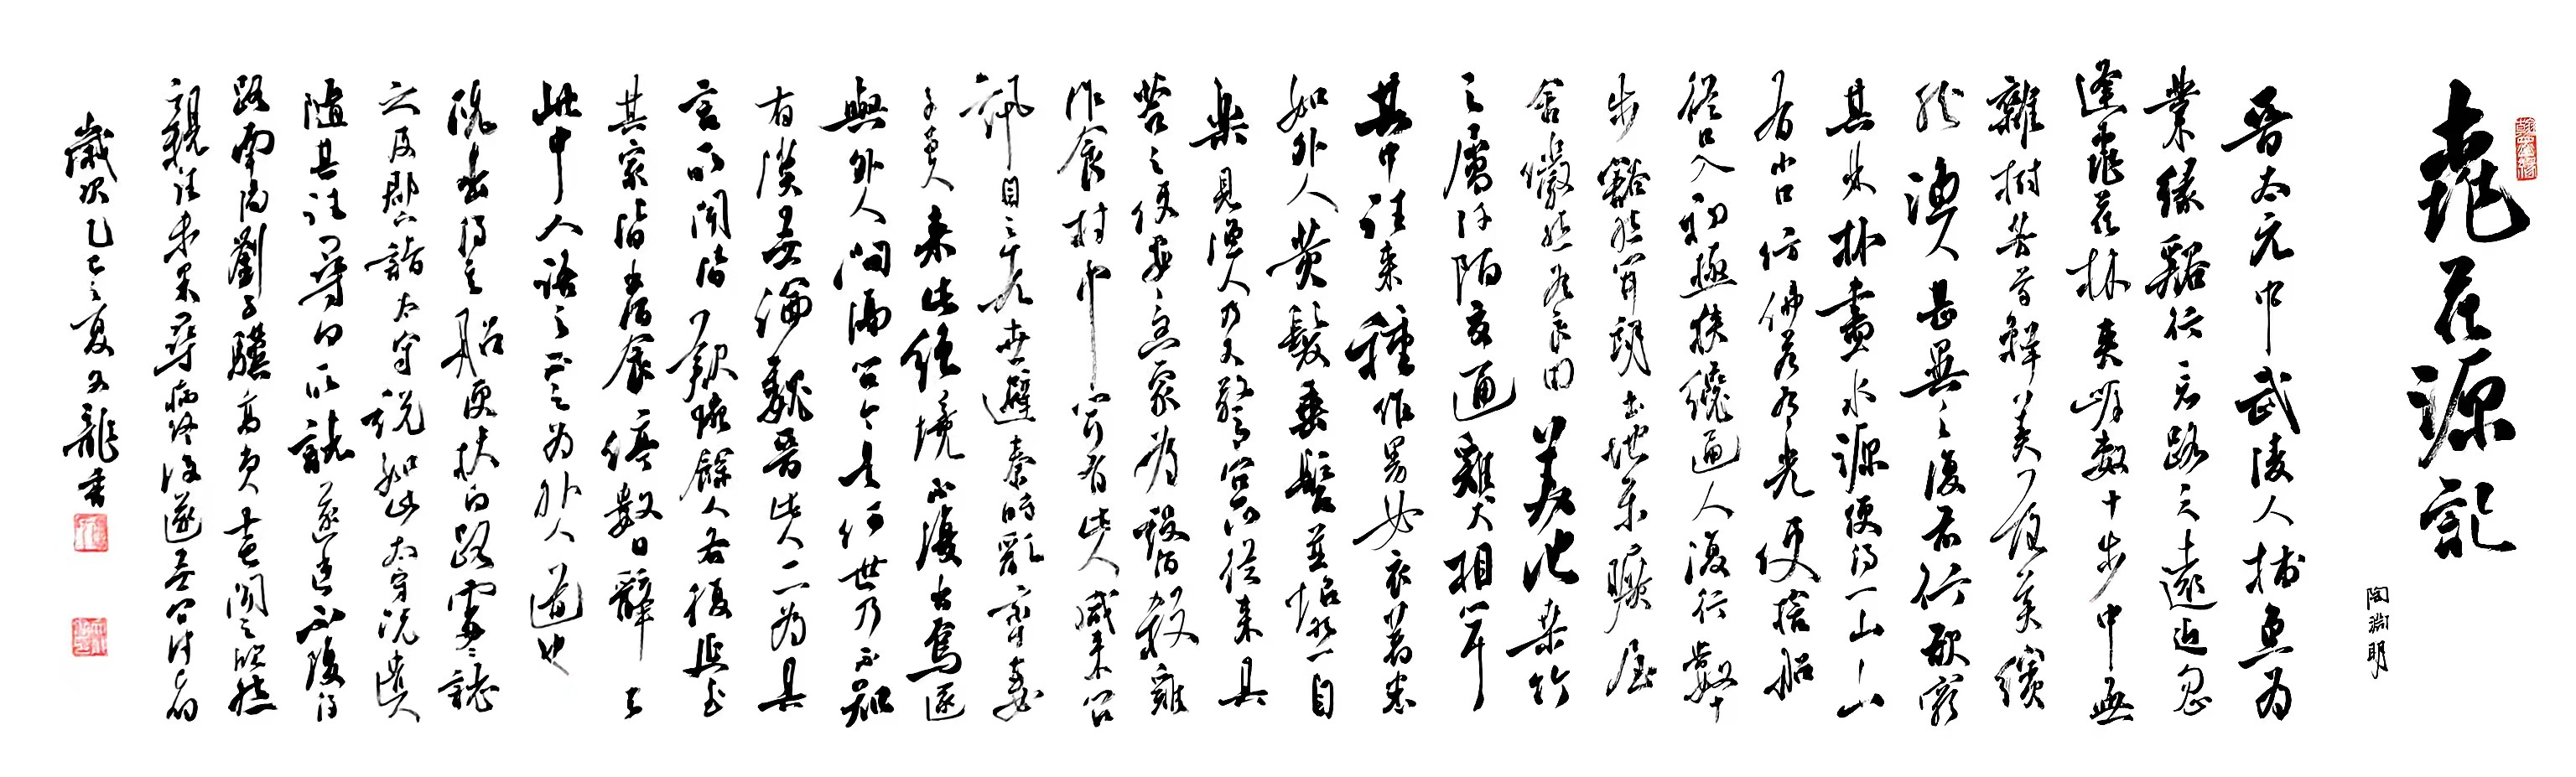 桃花源記
陶淵明
晉太元中武陵人捕魚為
業緣谿行忘路之遠近忽
逢桃花林夾岸數十步中無
雜樹芳草鮮美落英繽
紛漁人甚異之復前行欲窮
其林林盡水源便得一山山
有小口仿佛若有光便捨船
從口入初極狹纔通人復行數十
步豁然開朗土地平曠屋
舍儼然有良田美池桑竹
之屬阡陌交通雞犬相聞
其中往來種作男女衣著悉
如外人黃髮垂髫並怡然自
樂見漁人乃大驚問所從來具
答之便要還家為設酒殺雞
作食村中聞有此人咸來問
訊自云先世避秦時亂率妻
子邑人來此絕境不復出焉遂
與外人間隔問今是何世乃不知
有漢無論魏晉此人一一為具
言所聞皆歎惋餘人各復延至
其家皆出酒食停數日辭去
此中人語云不足為外人道也
既出得其船便扶向路處處誌
之及郡下詣太守說如此太守即遣人
隨其往尋向所誌遂迷不復得
路南陽劉子驥高尚士也聞之欣然
親往未果尋病終後遂無問津者
歲次乙巳之夏文龍書